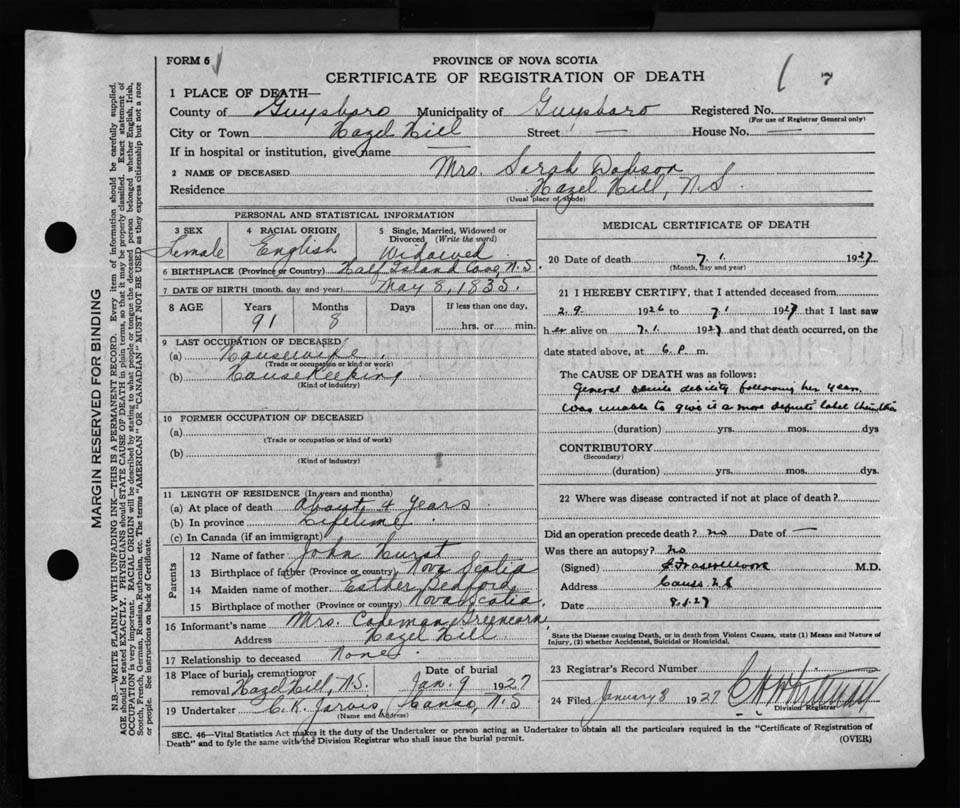 FORM 6
PROVINCE OF NOVA SCOTIA
CERTIFICATE OF REGISTRATION OF DEATH
1 PLACE OF DEATH—
County of Guysboro Municipality of Guysboro Registered No.
(For use of Registrar General only)
City or Town Hazel Hill Street — House No. —
If in hospital or institution, give name —
2 NAME OF DECEASED Mrs. Sarah Dobson
Residence Hazel Hill, N.S.
(Usual place of abode)
PERSONAL AND STATISTICAL INFORMATION
3 SEX Female
4 RACIAL ORIGIN English
5 Single, Married, Widowed or Divorced (Write the word) Widowed
6 BIRTHPLACE (Province or Country) Half Island Cove, N.S.
7 DATE OF BIRTH (month, day and year) May 8, 1835.
8 AGE Years 91 Months 8 Days If less than one day, hrs. or min.
9 LAST OCCUPATION OF DECEASED
(a) Housewife
(Trade or occupation or kind of work)
(b) Housekeeping
(Kind of industry)
10 FORMER OCCUPATION OF DECEASED
(a)
(Trade or occupation or kind of work)
(b)
(Kind of industry)
11 LENGTH OF RESIDENCE (In years and months)
(a) At place of death About 4 years
(b) In province Lifetime
(c) In Canada (if an immigrant)
Parents
12 Name of father John Hurst
13 Birthplace of father (Province or country) Nova Scotia
14 Maiden name of mother Esther Bedford
15 Birthplace of mother (Province or country) Nova Scotia
16 Informant's name Mrs. Coleman Greencorn
Address Hazel Hill
17 Relationship to deceased None
18 Place of burial, cremation or removal Hazel Hill, N.S. Date of burial Jan. 9 1927
19 Undertaker C.R. Jarvis, Canso, N.S
(Name and Address)
MEDICAL CERTIFICATE OF DEATH
20 Date of death 7.1. 1927
(Month, day and year)
21 I HEREBY CERTIFY, that I attended deceased from
2.9. 1926 to 7.1 1927 that I last saw
her alive on 7.1. 1927 and that death occurred, on the
date stated above, at 6.P. m.
The CAUSE OF DEATH was as follows:
General senile debility following her years.
Was unable to give it a more definite label than this
(duration) yrs. mos. dys
CONTRIBUTORY
(Secondary)
(duration) yrs. mos. dys.
22 Where was disease contracted if not at place of death?
Did an operation precede death? no Date of —
Was there an autopsy? no
(Signed) M.D.
Address Canso N.S
Date 8.1.27
State the Disease causing Death, or in death from Violent Causes, state (1) Means and Nature of
Injury, (2) whether Accidental, Suicidal or Homicidal.
23 Registrar's Record Number
24 Filed January 8 1927
Division Registrar
SEC. 46—Vital Statistics Act makes it the duty of the Undertaker or person acting as Undertaker to obtain all the particulars required in the "Certificate of Registration of
Death" and to fyle the same with the Division Registrar who shall issue the burial permit.
(OVER)
MARGIN RESERVED FOR BINDING
N.B.—WRITE PLAINLY WITH UNFADING INK—THIS IS A PERMANENT RECORD. Every item of information should be carefully supplied.
AGE should be stated EXACTLY. PHYSICIANS should STATE CAUSE OF DEATH in plain terms, so that it may be properly classified. Exact statement of
OCCUPATION is very important. RACIAL ORIGIN will be described by stating to what people or tongue the deceased person belonged whether English, Irish,
Scotch, French, German, Russian, Ruthenian, etc. The terms "AMERICAN" OR "CANADIAN" MUST NOT BE USED as they express citizenship but not a race
or people. See instructions on back of Certificate.